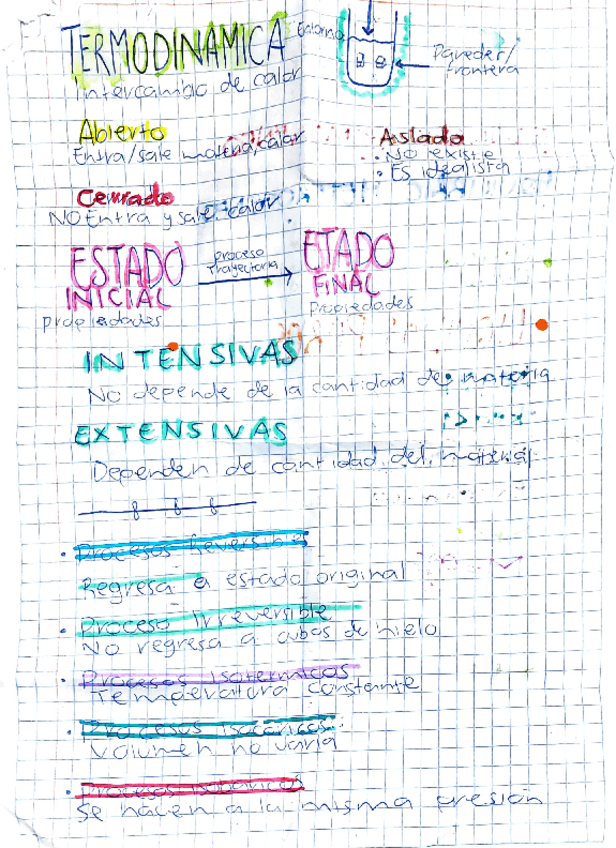 TERMODINAMICA
Intercambio de calor
Entorno
Paredes/
frontera
Abierto
Entra/sale materia, calor
Aislado
• NO existe
• Es idealista
Cerrado
NO Entra y sale calor
ESTADO
INICIAL
propiedades
proceso
Trayectoria
ETADO
FINAL
Propiedades
INTENSIVAS
No depende de la cantidad de materia
EXTENSIVAS
Dependen de cantidad del material
• Procesos Reversibles
Regresa a estado original
• Proceso Irreversible
No regresa a cubos de hielo
• Procesos isotermicos
Temperatura constante
• Procesos Isocóricos
Volumen no varia
• Procesos isobáricos
Se hacen a la misma presión